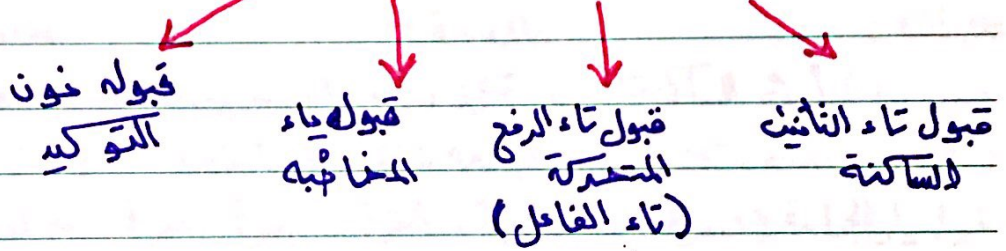 قبول تاء التأنيث
الساكنة
قبول تاء الرفع
المتحركة
(تاء الفاعل)
قبوله ياء
المخاطبه
قبوله نون
التوكيد